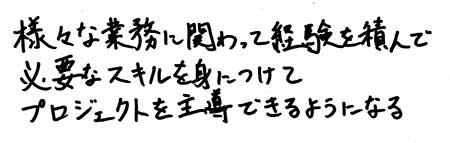 様々な業務に関わって経験を積んで
必要なスキルを身につけて
プロジェクトを主導できるようになる